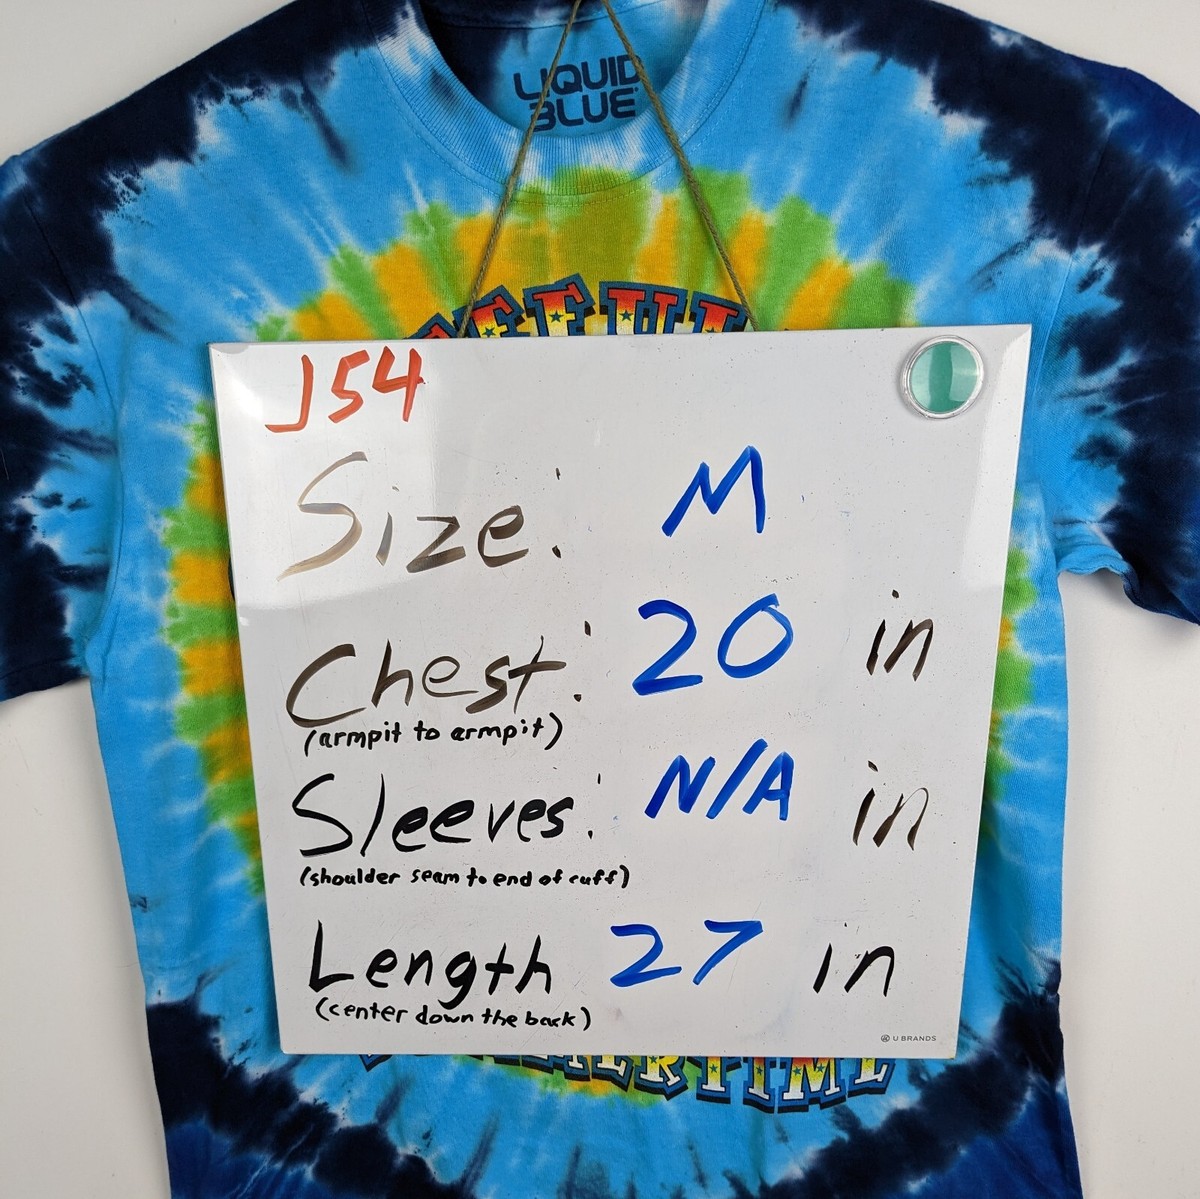 LIQUID
BLUE
J54
Size: M
Chest: 20 in
(armpit to armpit)
Sleeves: N/A in
(shoulder seam to end of cuff)
Length 27 in
(center down the back)
U BRANDS